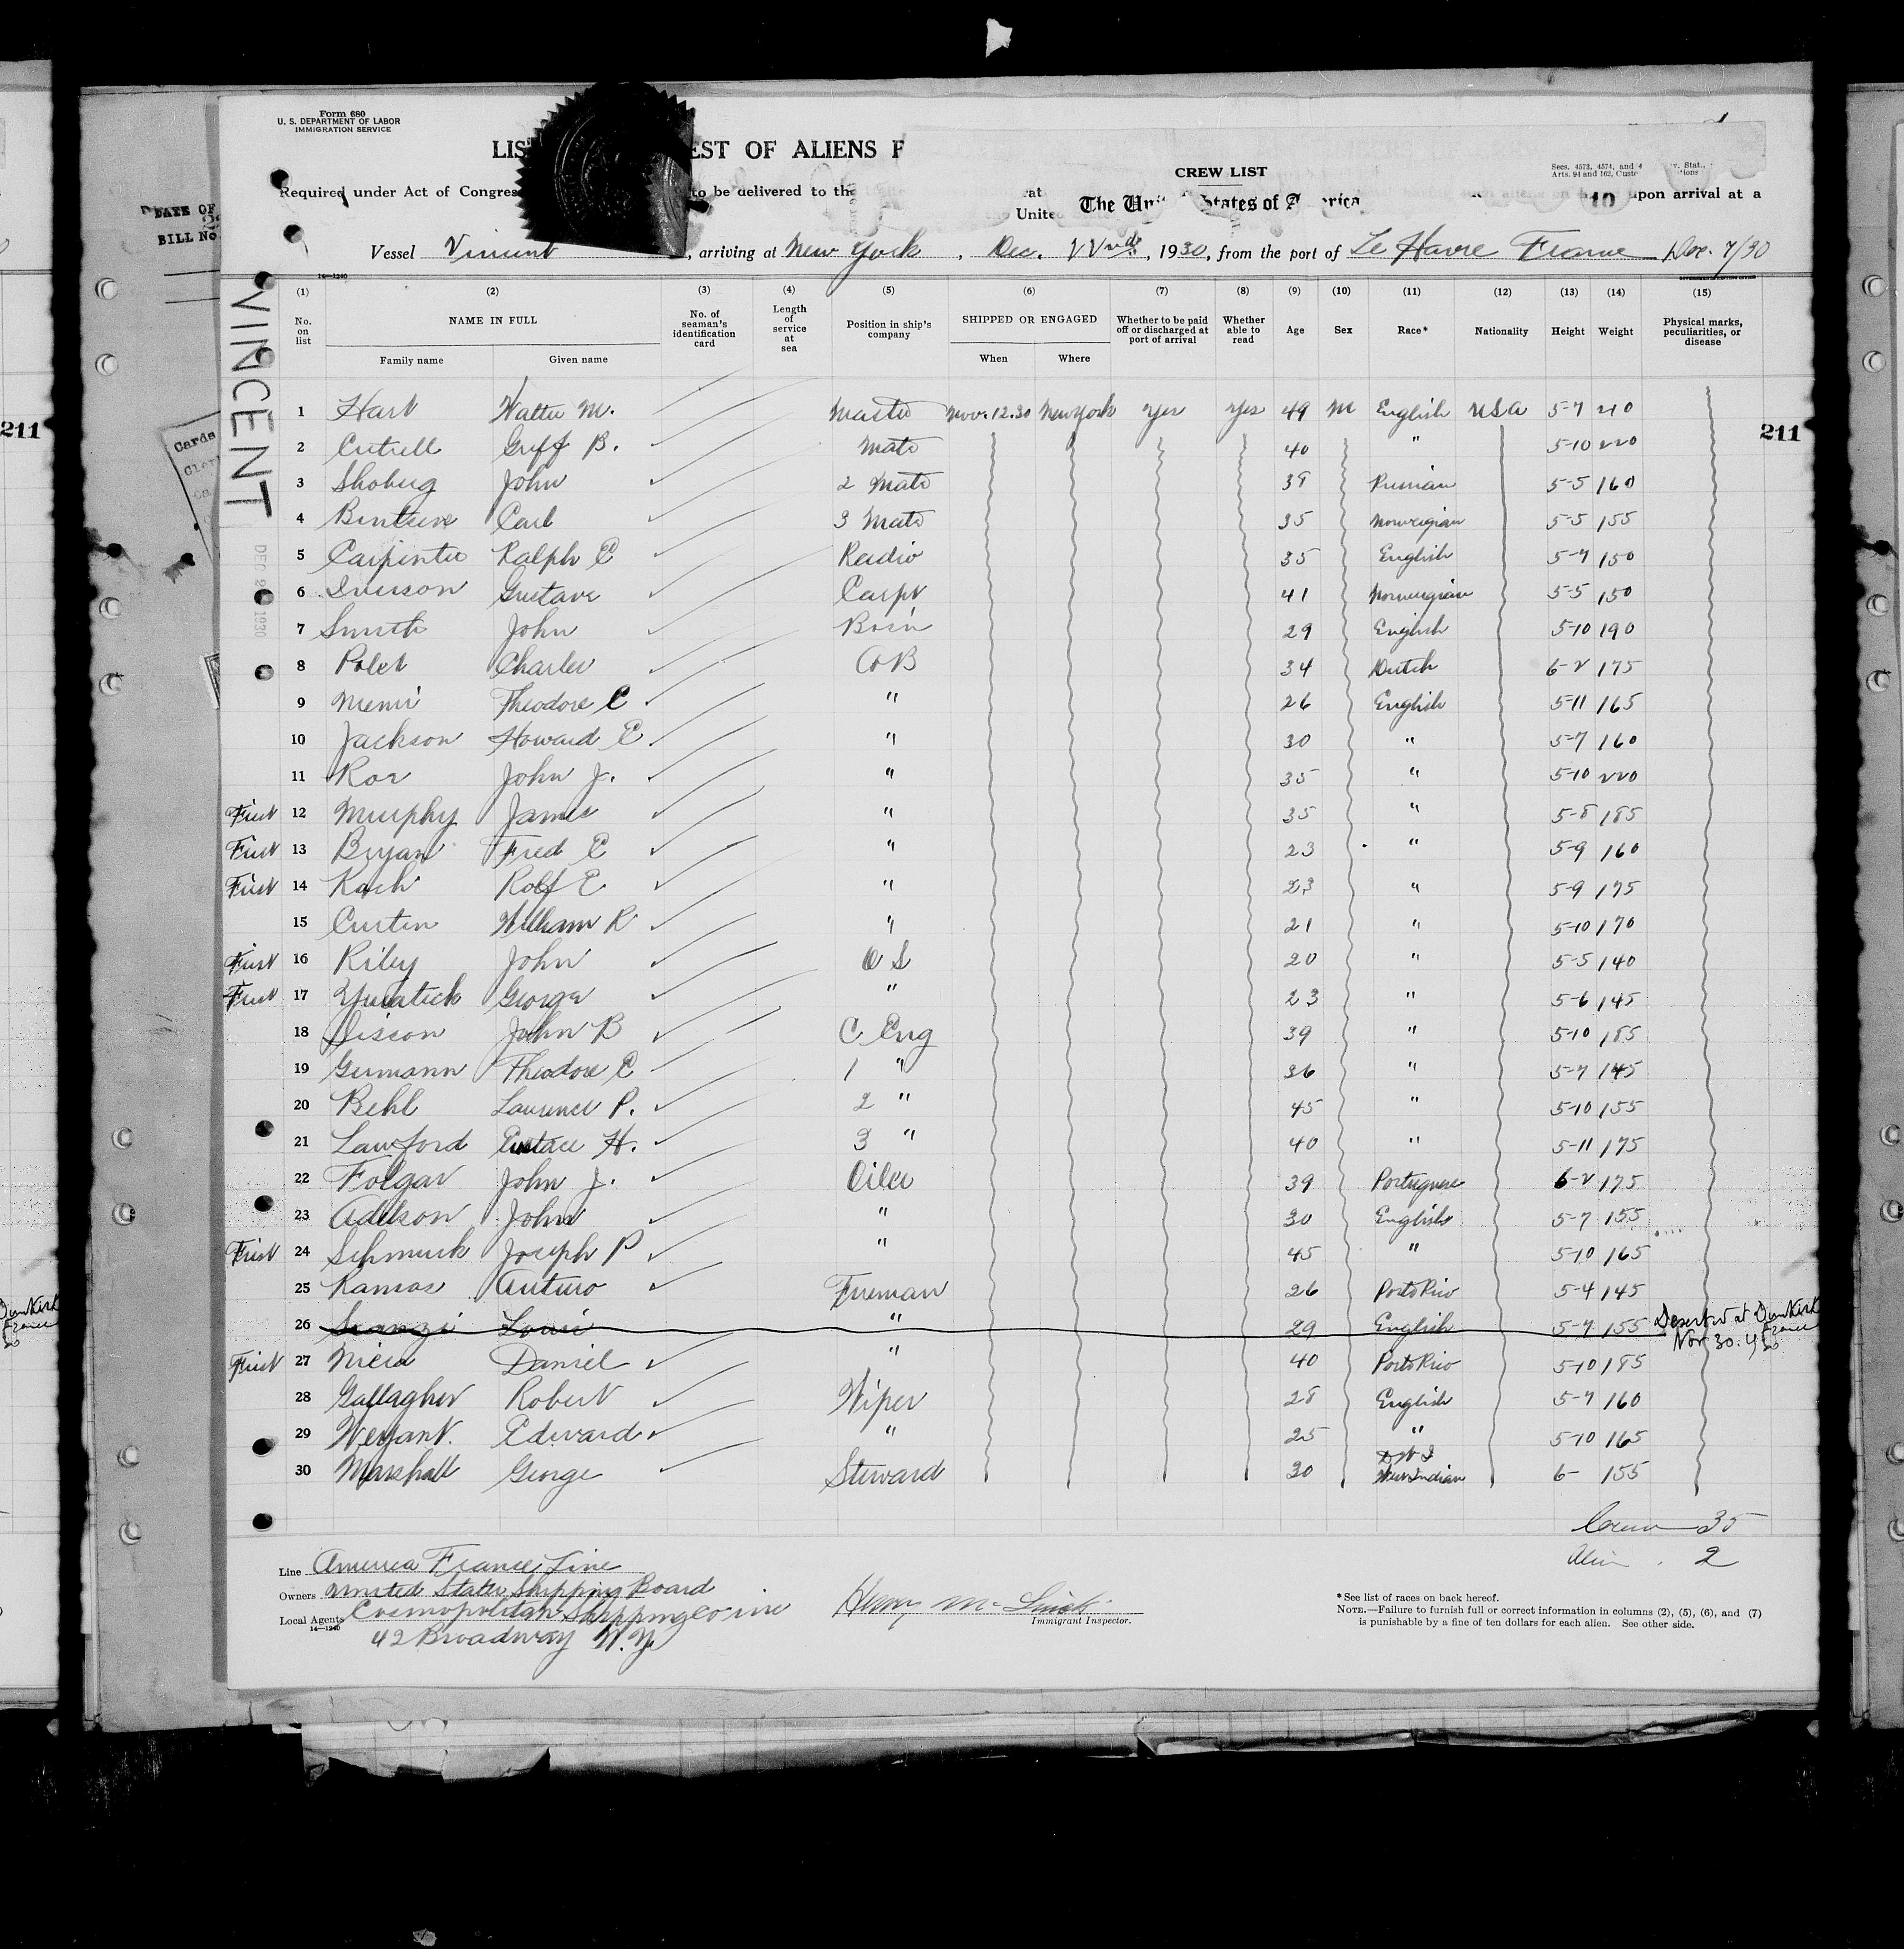 Form 680
U. S. DEPARTMENT OF LABOR
IMMIGRATION SERVICE
LIS EST OF ALIENS F
CREW LIST
Secs. 4573, 4574, and 4 v. Stat.,
Arts. 94 and 162, Custo tions
Required under Act of Congres to be delivered to the Unite The Uni States of A rica 10 upon arrival at a
DATE OF
BILL No.
Vessel Vincent, arriving at New York, Dec. 22nd, 1930, from the port of Le Havre France Dec. 7/30
14—1240
(1) (2) (3) (4) (5) (6) (7) (8) (9) (10) (11) (12) (13) (14) (15)
No. on list NAME IN FULL No. of seaman's identification card Length of service at sea Position in ship's company SHIPPED OR ENGAGED Whether to be paid off or discharged at port of arrival Whether able to read Age Sex Race* Nationality Height Weight Physical marks, peculiarities, or disease
Family name Given name When Where
VINCENT
DEC 2 1930
211
211
Cards
1 Hart Walter M. Master Nov. 12.30 New York Yes Yes 49 M English USA 5-7 210
2 Cutrell Griff B. Mate 40 " 5-10 220
3 Shoberg John 2 Mate 39 Russian 5-5 160
4 Berntsen Carl 3 Mate 35 Norwegian 5-5 155
5 Carpenter Ralph E Radio 35 English 5-7 150
6 Iverson Gustave Carpt 41 Norwegian 5-5 150
7 Smith John Bosn 29 English 5-10 190
8 Polet Charles A B 34 Dutch 6-2 175
9 Theodore C " 26 English 5-11 165
10 Jackson Howard E " 30 " 5-7 160
11 Roe John J. " 35 " 5-10 220
First 12 Murphy James " 35 " 5-8 185
First 13 Bryan Fred E " 23 " 5-9 160
First 14 Koch Rolf E " 23 " 5-9 175
15 Curten William R " 21 " 5-10 170
First 16 Riley John O S 20 " 5-5 140
First 17 George " 23 " 5-6 145
18 Siscon John B C Eng 39 " 5-10 185
19 Germann Theodore C 1 " 36 " 5-7 145
20 Behl Laurence P. 2 " 45 " 5-10 155
21 Lawford Eustace H. 3 " 40 " 5-11 175
22 Folgar John J. Oiler 39 Portuguese 6-2 175
23 Adelson John " 30 English 5-7 155
First 24 Schmuck Joseph P " 45 " 5-10 165
25 Ramos Arturo Fireman 26 Porto Rico 5-4 145
26 Louis " 29 English 5-7 155 Deserted at Dunkirk France Nov 30. 1930
First 27 Daniel " 40 Porto Rico 5-10 185
28 Gallagher Robert Wiper 28 English 5-7 160
29 Weyant. Edward " 25 " 5-10 165
30 Marshall George Steward 30 West Indian 6- 155
Crew 35
Alien 2
Line America France Line
Owners United States Shipping Board
Local Agents Cosmopolitan Shipping Co Inc
14—1240
42 Broadway N.Y.
Immigrant Inspector.
*See list of races on back hereof.
NOTE.—Failure to furnish full or correct information in columns (2), (5), (6), and (7)
is punishable by a fine of ten dollars for each alien. See other side.